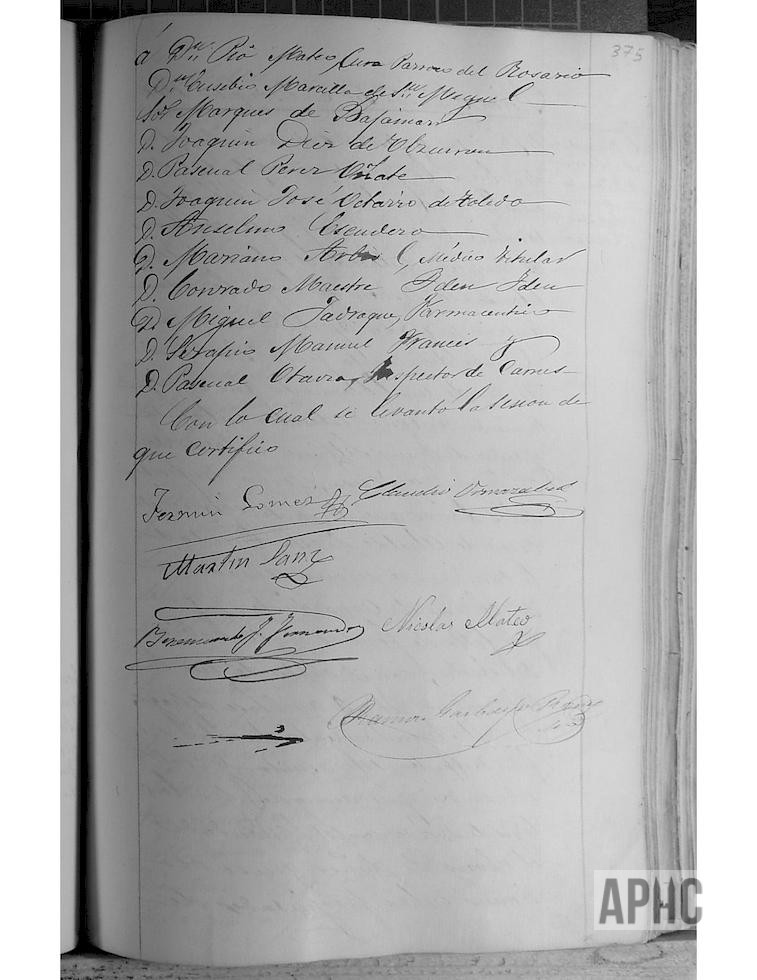 375
á Dn. Pio Mateo, Cura Parroco del Rosario
Dn. Eusebio Marcilla de Sn. Miguel
Sor. Marques de Bajamar
D. Joaquin Diez de
D. Pascual Perez Oñate
D. Joaquin José Octavio de Toledo
D. Anselmo Escudero
D. Mariano Médico titular
D. Conrado Maestre Yden Yden
D. Miguel Jadraque, Farmaceutico
D. Serapio Manuel Frances y
D. Pascual Inspector de Carnes
Con lo cual se levantó la sesion de
que certifico
Fermin Gomez Claudio Ormazabal
Martin Sanz
Nicolas Mateo
Ramon
APHC